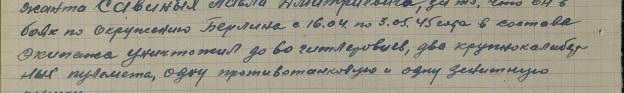 жанта Савиных Павла Дмитриевича, за то, что он в
боях по окружению Берлина с 16.04 по 3.05.45 года в составе
экипажа уничтожил до 80 гитлеровцев, два крупнокалибер
ных пулемета, одну противотанковую и одну зенитную